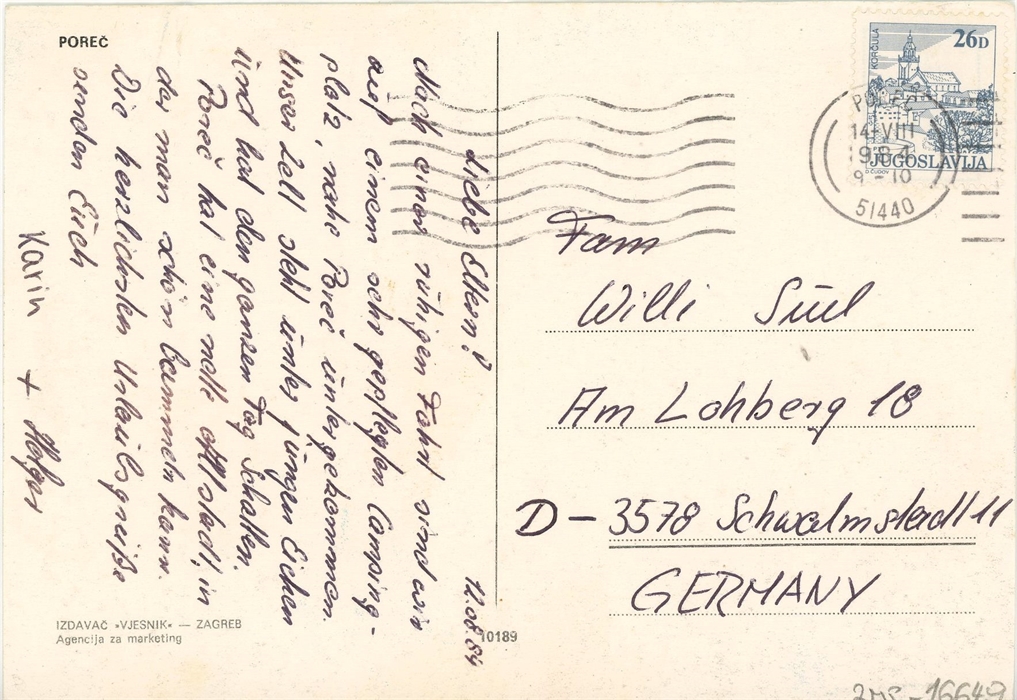 POREČ
12.08.84
Liebe Eltern!
Nach einer ruhigen Fahrt sind wir
auf einem sehr gepflegten Camping-
platz, nahe Poreč untergekommen.
Unser Zelt steht unter jungen Eichen
und hat den ganzen Tag Schatten.
Poreč hat eine nette Altstadt, in
der man schön bummeln kann.
Die herzlichsten Urlaubsgrüße
senden Euch
Karin + Holger
IZDAVAČ »VJESNIK« — ZAGREB
Agencija za marketing
10189
KORČULA
26D
JUGOSLAVIJA
14-VIII
9-10
51440
Fam
Willi
Am Lohberg 18
D-3578 Schwalmstadt 11
GERMANY